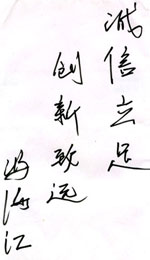 诚信立足
创新致远
冯海江